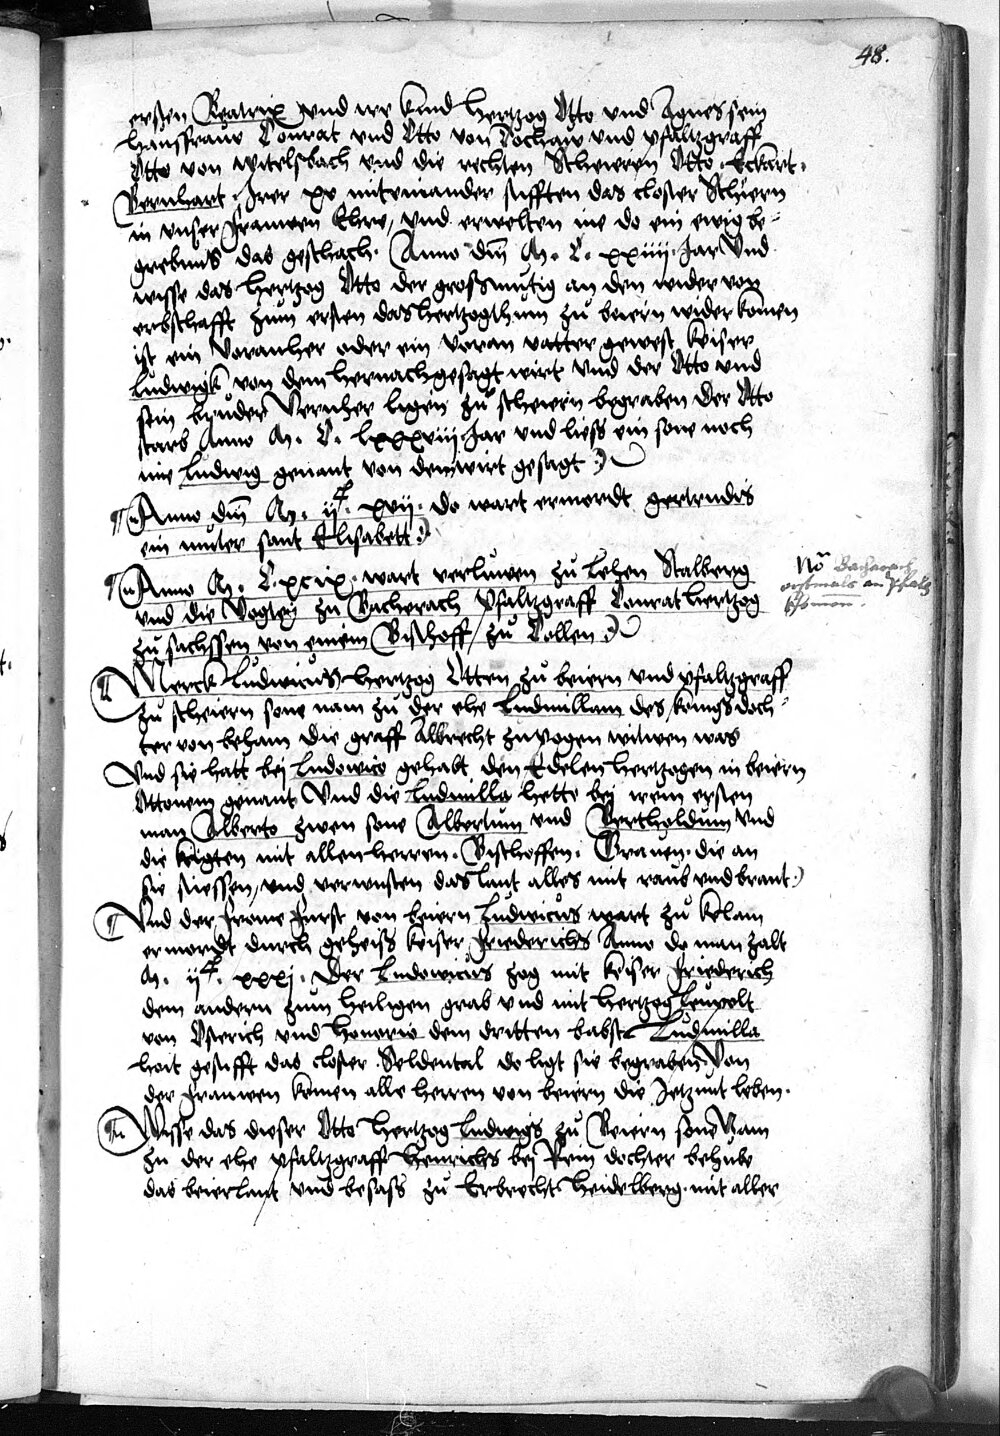 48.
ersten Beatrix und ire kind hertzog Otto und Agnes sein
hausfrauw Conrat und Otto von Dochaw und pfaltzgraff
Otto von witelspach und die rechten Scheieren Otto Eckart
Bernhart Irer xv miteinander stifften das closter Schiern
in unser frauwen Ehre, und erwelten ine do ein ewig be-
grebnus das geschach. Anno dm̄ M. C. xxiiii. Jar Und
wisse das hertzog Otto der großmutig an den wider von
erbschafft zum ersten das hertzogthum zu beiern widerkomen
ist ein voranher oder ein voran vatter gewest keiser
Ludwigk von dem hernach gesagt wirt Und der Otto und
sein bruder Vernher ligen zu scheiern begraben Der Otto
starb Anno M. C. lxxxviii Jar und liess ein sone noch
ime Ludwig genant von dem wirt gesagt
Anno dm̄ M. ijc. xvij. do wart ermordt gertrudis
ein muter sant Elisabett
Anno M. C. xcix. wart verluwen zu Lehen Stalberg
und die Vogtey zu Bacherach Pfaltzgraff Conrat hertzog
zu sachssen von einem Bischoff zu Collen
No Bacharach
erstmals an Pfaltz
khomen.
Merck Ludwicus hertzog Otten zu beiern und pfaltzgraff
zu scheiern sone nam zu der ehe Ludmillam des konigs doch-
ter von beham die graff Albrecht zu bogen witwen was
Und sie hatt bej Ludowico gehabt den Edelen hertzogen in beiern
Ottonem genant Und die Ludmilla hette bej irem ersten
man Alberto zwen sone Albertum und Bertholdum und
die krigten mit allen herren. Bischoffen. Graven. die an
sie stiessen, und verwusten das lant alles mit raub und brant.
Und der frome furst von beiern Ludwicus wart zu kelam
ermordt durch geheiss keiser friederichs Anno do man zalt
M. ijc. xxxj. Der Ludowicus zog mit keiser friederich
dem andern zum heiligen grab und mit hertzog Leupolt
von Osterich und Honorio dem dritten babst Ludmilla
hait gestifft das closter Seldental do ligt sie begraben Von
der frauwen komen alle herren von beiern die Jetzunt leben.
Wisse das dieser Otto hertzog Ludwigs zu Beiern sone Nam
zu der ehe pfaltzgraff Henrichs bej Rein dochter behube
das beierlant und besass zu Erbrecht Heidelberg. mit aller